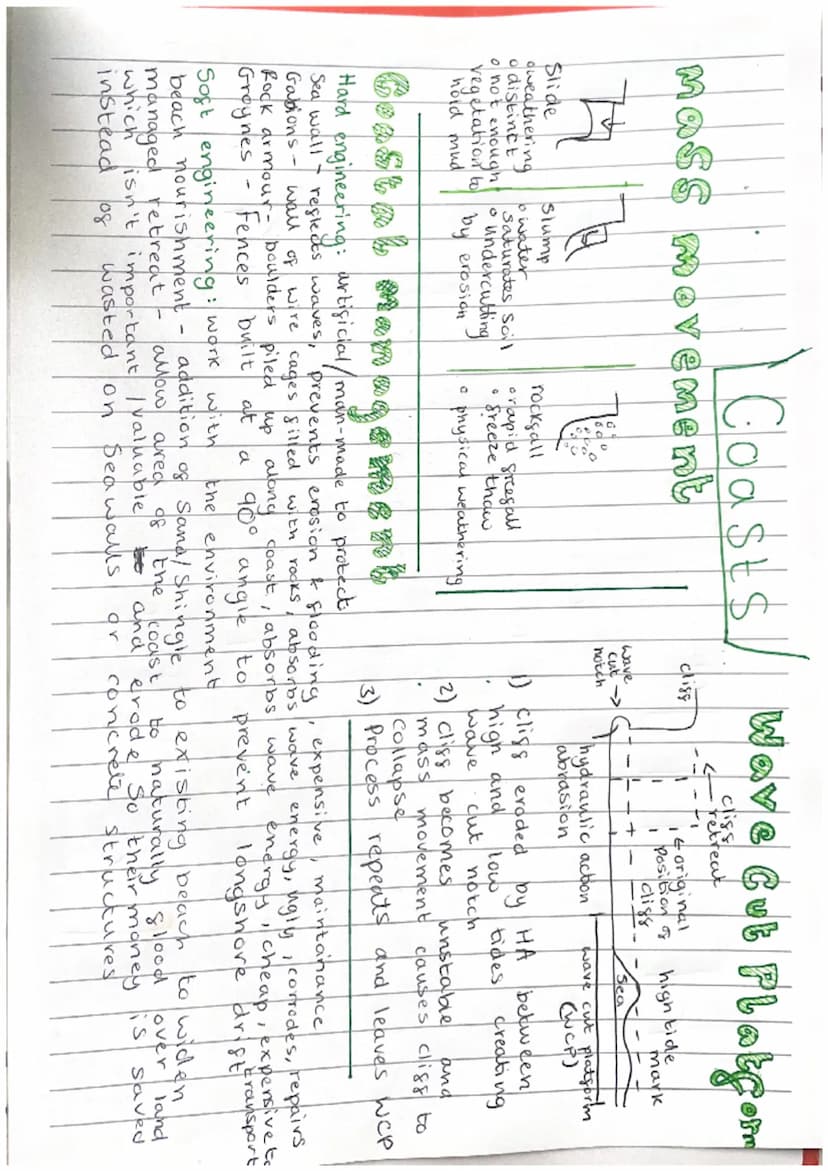 Coasts
mass movement
Slide
o weathering
o distinct
o not enough
vegetation to
hold mud
slump
o water
saturates soil
o undercutting
by erosion
rockfall
o rapid freefall
o freeze thaw
o physical weathering
Wave Cut Platform
cliff
cliff
retreat
← original
position of
cliff
high tide
mark
wave
cut
notch →
sea
hydraulic action
abrasion
wave cut platform
(WCP)
1) cliff eroded by HA between
high and low tides creating
wave cut notch
2) cliff becomes unstable and
mass movement causes cliff to
collapse
3) Process repeats and leaves WCP
Coastal management
Hard engineering: artificial/man-made to protect
Sea wall - reflects waves, prevents erosion & flooding, expensive, maintainance
Gabions - wall of wire cages filled with rocks, absorbs wave energy, ugly, corrodes, repairs
Rock armour - boulders piled up along coast, absorbs wave energy, cheap, expensive to transport
Groynes - Fences built at a 90° angle to prevent longshore drift
Soft engineering: work with the environment
beach nourishment - addition of sand/shingle to existing beach to widen
managed retreat - allow area of the coast to naturally flood over land
which isn't important/valuable and erode so their money is saved
instead of wasted on seawalls or concrete structures